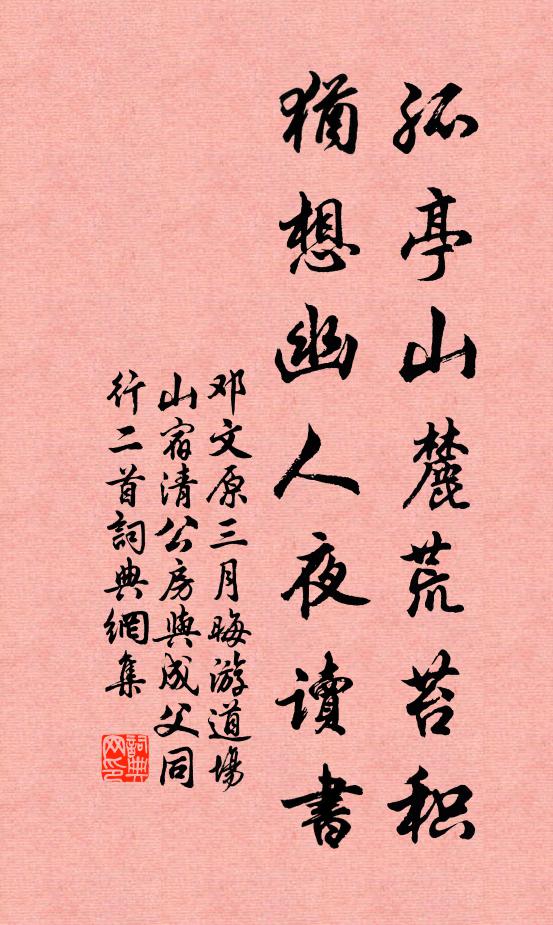 孤亭山麓荒苔积
犹想幽人夜讀書
邓文原三月晦游道場
山宿清公房與成父同
行二首詞典網集
詞典
网印